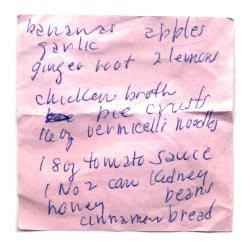 bananas apples
garlic
ginger root 2 lemons
chicken broth
pie crusts
16 oz vermicelli noodles
1 8 oz tomato sauce
1 No 2 can kidney
beans
honey
cinnamon bread